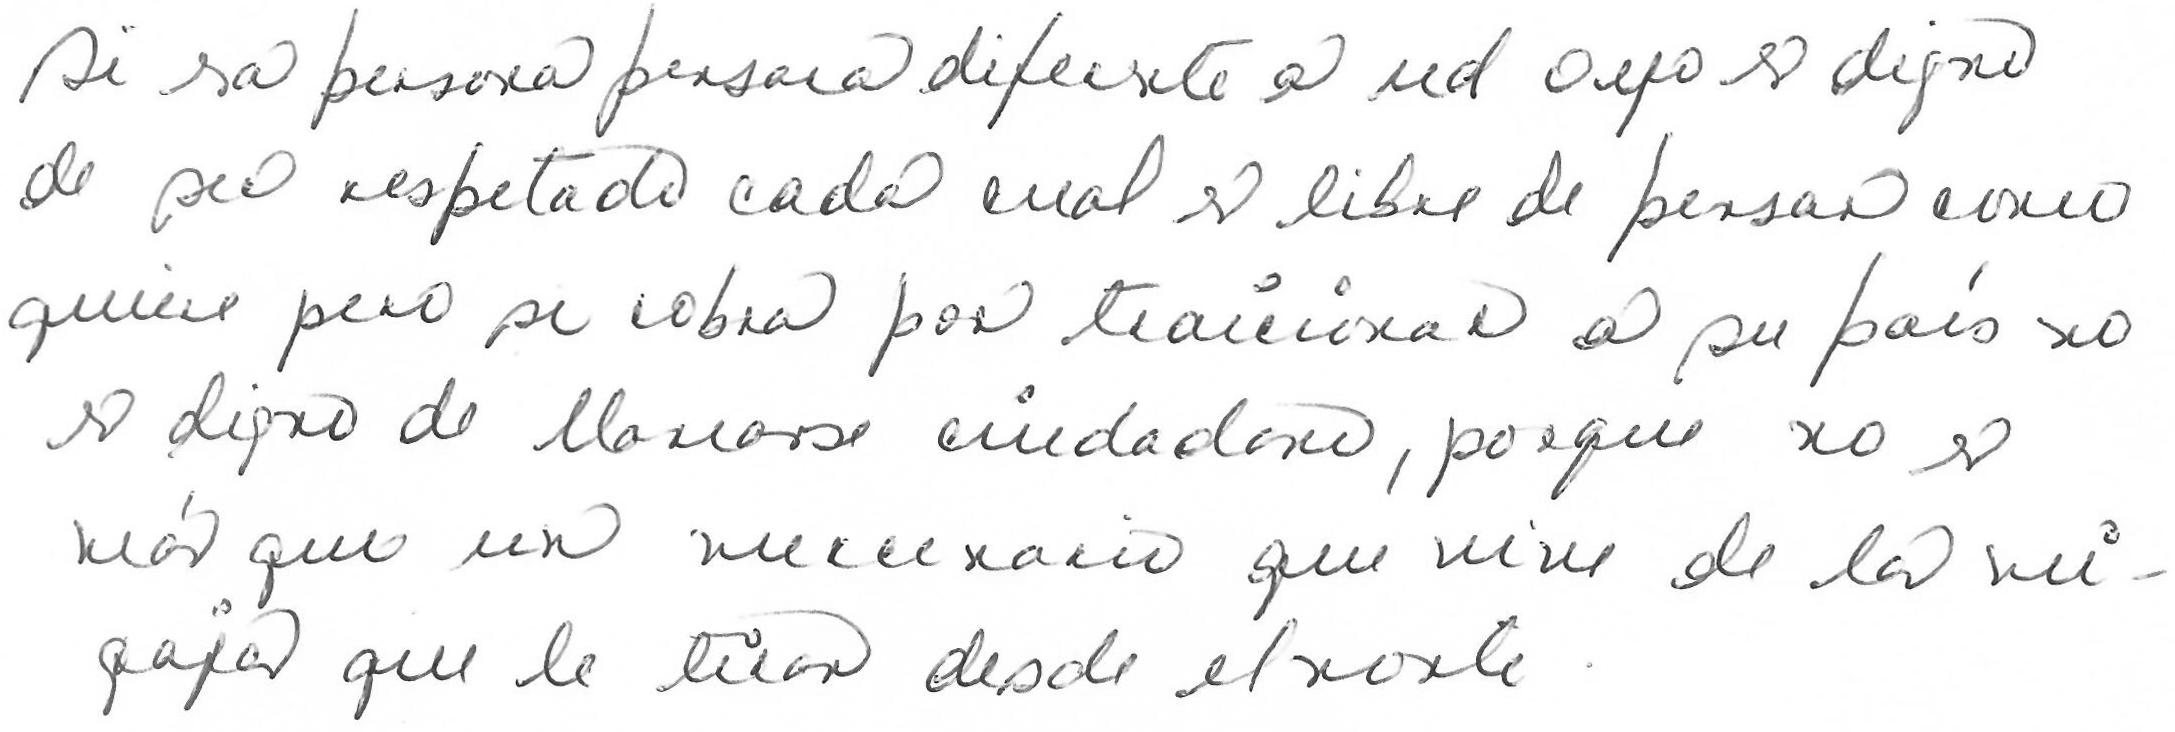 Si esa persona pensara diferente a ud o a yo es digno
de ser respetado cada cual es libre de pensar como
quiere pero si cobra por traicionar a su país no
es digno de llamarse ciudadano, porque no es
más que un mercenario que vive de las mi-
gajas que le tiran desde el norte.